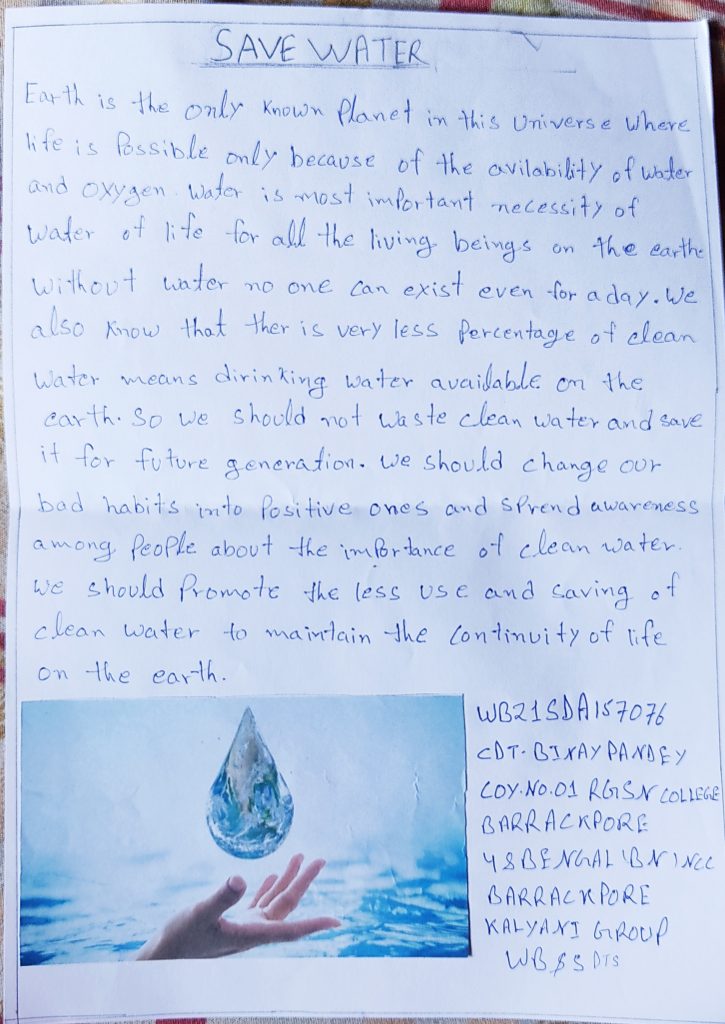 SAVE WATER
Earth is the only known Planet in this Universe Where
life is Possible only because of the avilability of water
and oxygen. Water is most important necessity of
Water of life for all the living beings on the earth.
Without water no one can exist even for a day. We
also know that ther is very less Percentage of clean
Water means dirinking water available on the
earth. So we should not waste clean water and save
it for future generation. We should change our
bad habits into Positive ones and sprend awareness
among People about the importance of clean water.
We should Promote the less use and saving of
clean water to maintain the continuity of life
on the earth.
WB21SDA157076
CDT. BINAY PANDEY
COY.NO.01 RGSN COLLEGE
BARRACKPORE
48 BENGAL BN NCC
BARRACKPORE
KALYANI GROUP
WB & S DTS